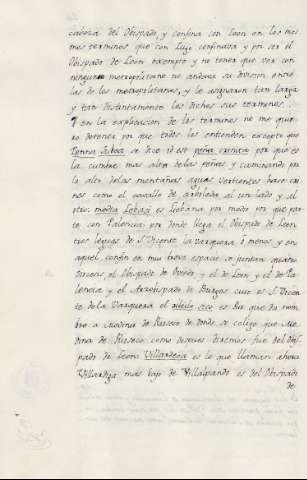 cabeza del Obispado, y confina con Leon en los mis
mos terminos que con Lugo confinava y por ser el
Obispado de Leon exempto y no tener que ver con
ningun metropolitano no andava su division entre
las de los metropolitanos, y le asignaron tan larga
y tan distintamente los dichos sus terminos.
Y en la explicacion de los terminos no me quie
ro detener por que todos los entienden excepto que
Penna se dice id est peña por que es
la cumbre mas alta de las peñas y caminando por
lo alto de las montañas aguas vertientes hace
nes como el cavallo de al un lado y al
otro media es Liebana por medio por que par
te con Palencia por donde llega el Obispado de Leon
tres leguas de S. Vicente la varquera ó menos, y en
aquel confin en muy breve espacio se juntan quatro
diocesis, el Obispado de Oviedo y el de Leon y el de Pa
lencia y el Arzobispado de Burgos cuio es S. Vicen
te de la Varquera el sico es Rio que dio nom
bre a Medina de Rioseco de donde se colige que Me
dina de Rioseco como despues diremos fue del Obis
pado de Leon Villardega es lo que llaman ahora
Villardiga mas bajo de Villalpando es del Obispado
de